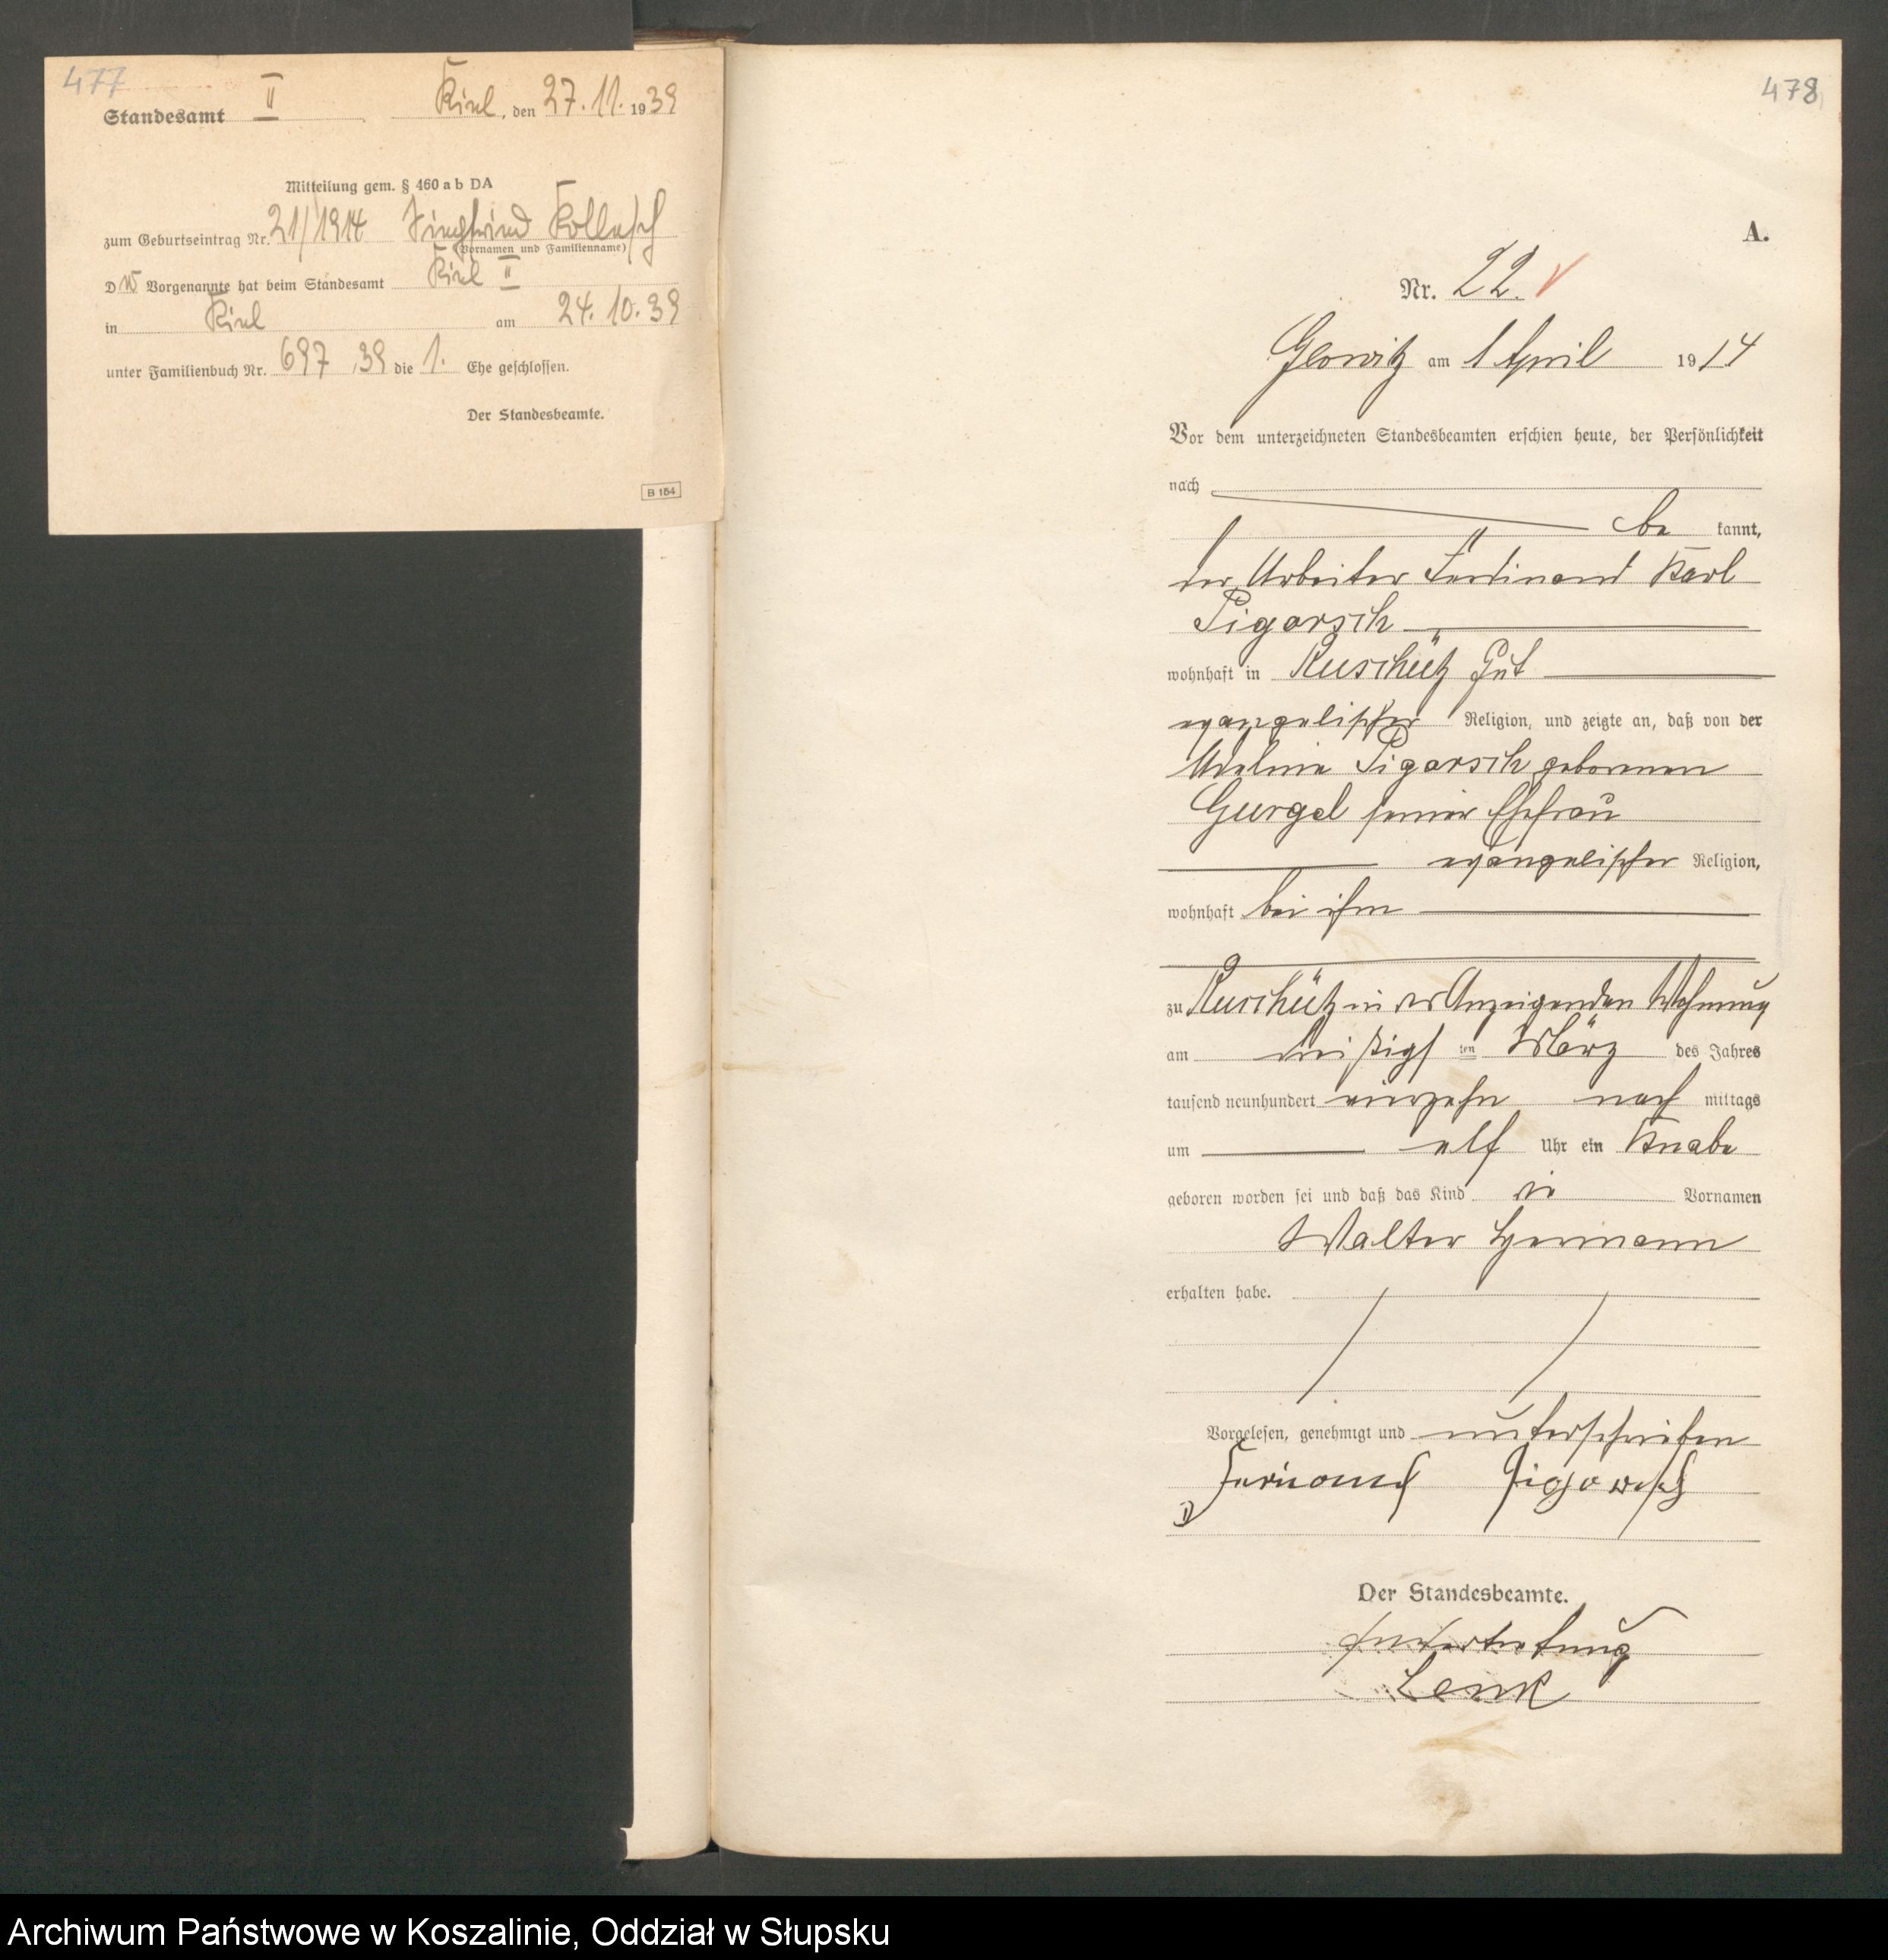 477
Standesamt II Kiel, den 27.11.1939
Mitteilung gem. § 460 a b DA
zum Geburtseintrag Nr. 21/1914 Siegfried Kollasch
(Vornamen und Familienname)
Der Vorgenannte hat beim Standesamt Kiel II
in Kiel am 24.10.39
unter Familienbuch Nr. 697 / 39 die 1. Ehe geschlossen.
Der Standesbeamte.
B 154
478
A.
Nr. 22.
Glowitz am 1 April 1914
Vor dem unterzeichneten Standesbeamten erschien heute, der Persönlichkeit
nach
be kannt,
der Arbeiter Ferdinand Karl
Pigorsch
wohnhaft in Ruschütz Gut
evangelischer Religion, und zeigte an, daß von der
Pigorsch geborenen
Gurgel seiner Ehefrau
evangelischer Religion,
wohnhaft bei ihm
zu Ruschütz in des Anzeigenden Wohnung
am dreißigsten März des Jahres
tausend neunhundert vierzehn nach mittags
um elf Uhr ein Knabe
geboren worden sei und daß das Kind die Vornamen
Walter Hermann
erhalten habe.
Vorgelesen, genehmigt und unterschrieben
Pigorsch
Der Standesbeamte.
In Vertretung
Lenk
Archiwum Państwowe w Koszalinie, Oddział w Słupsku